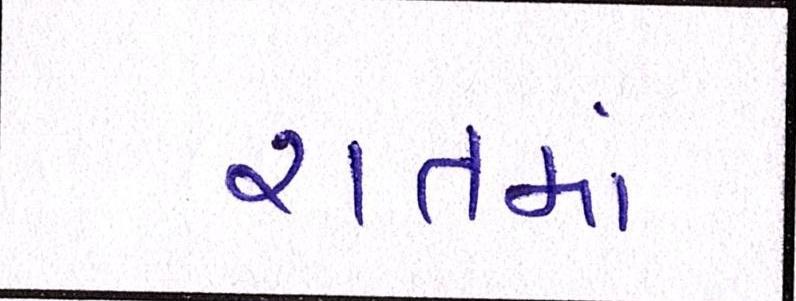 રાતમાં